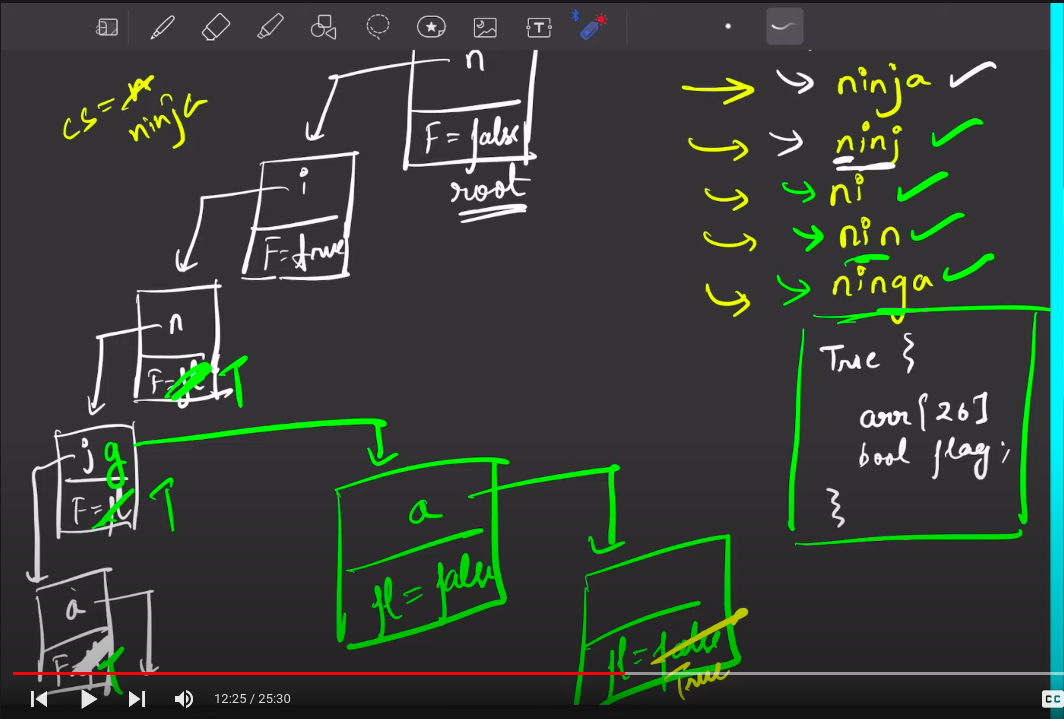 n
F = false
root
cs =
ninja
i
F = true
n
F =
T
j g
F =
T
a
F
T
a
fl = false
fl = false
True
ninja
ninj
ni
nin
ninga
True {
arr[26]
bool flag;
}
12:25 / 25:30
CC
T